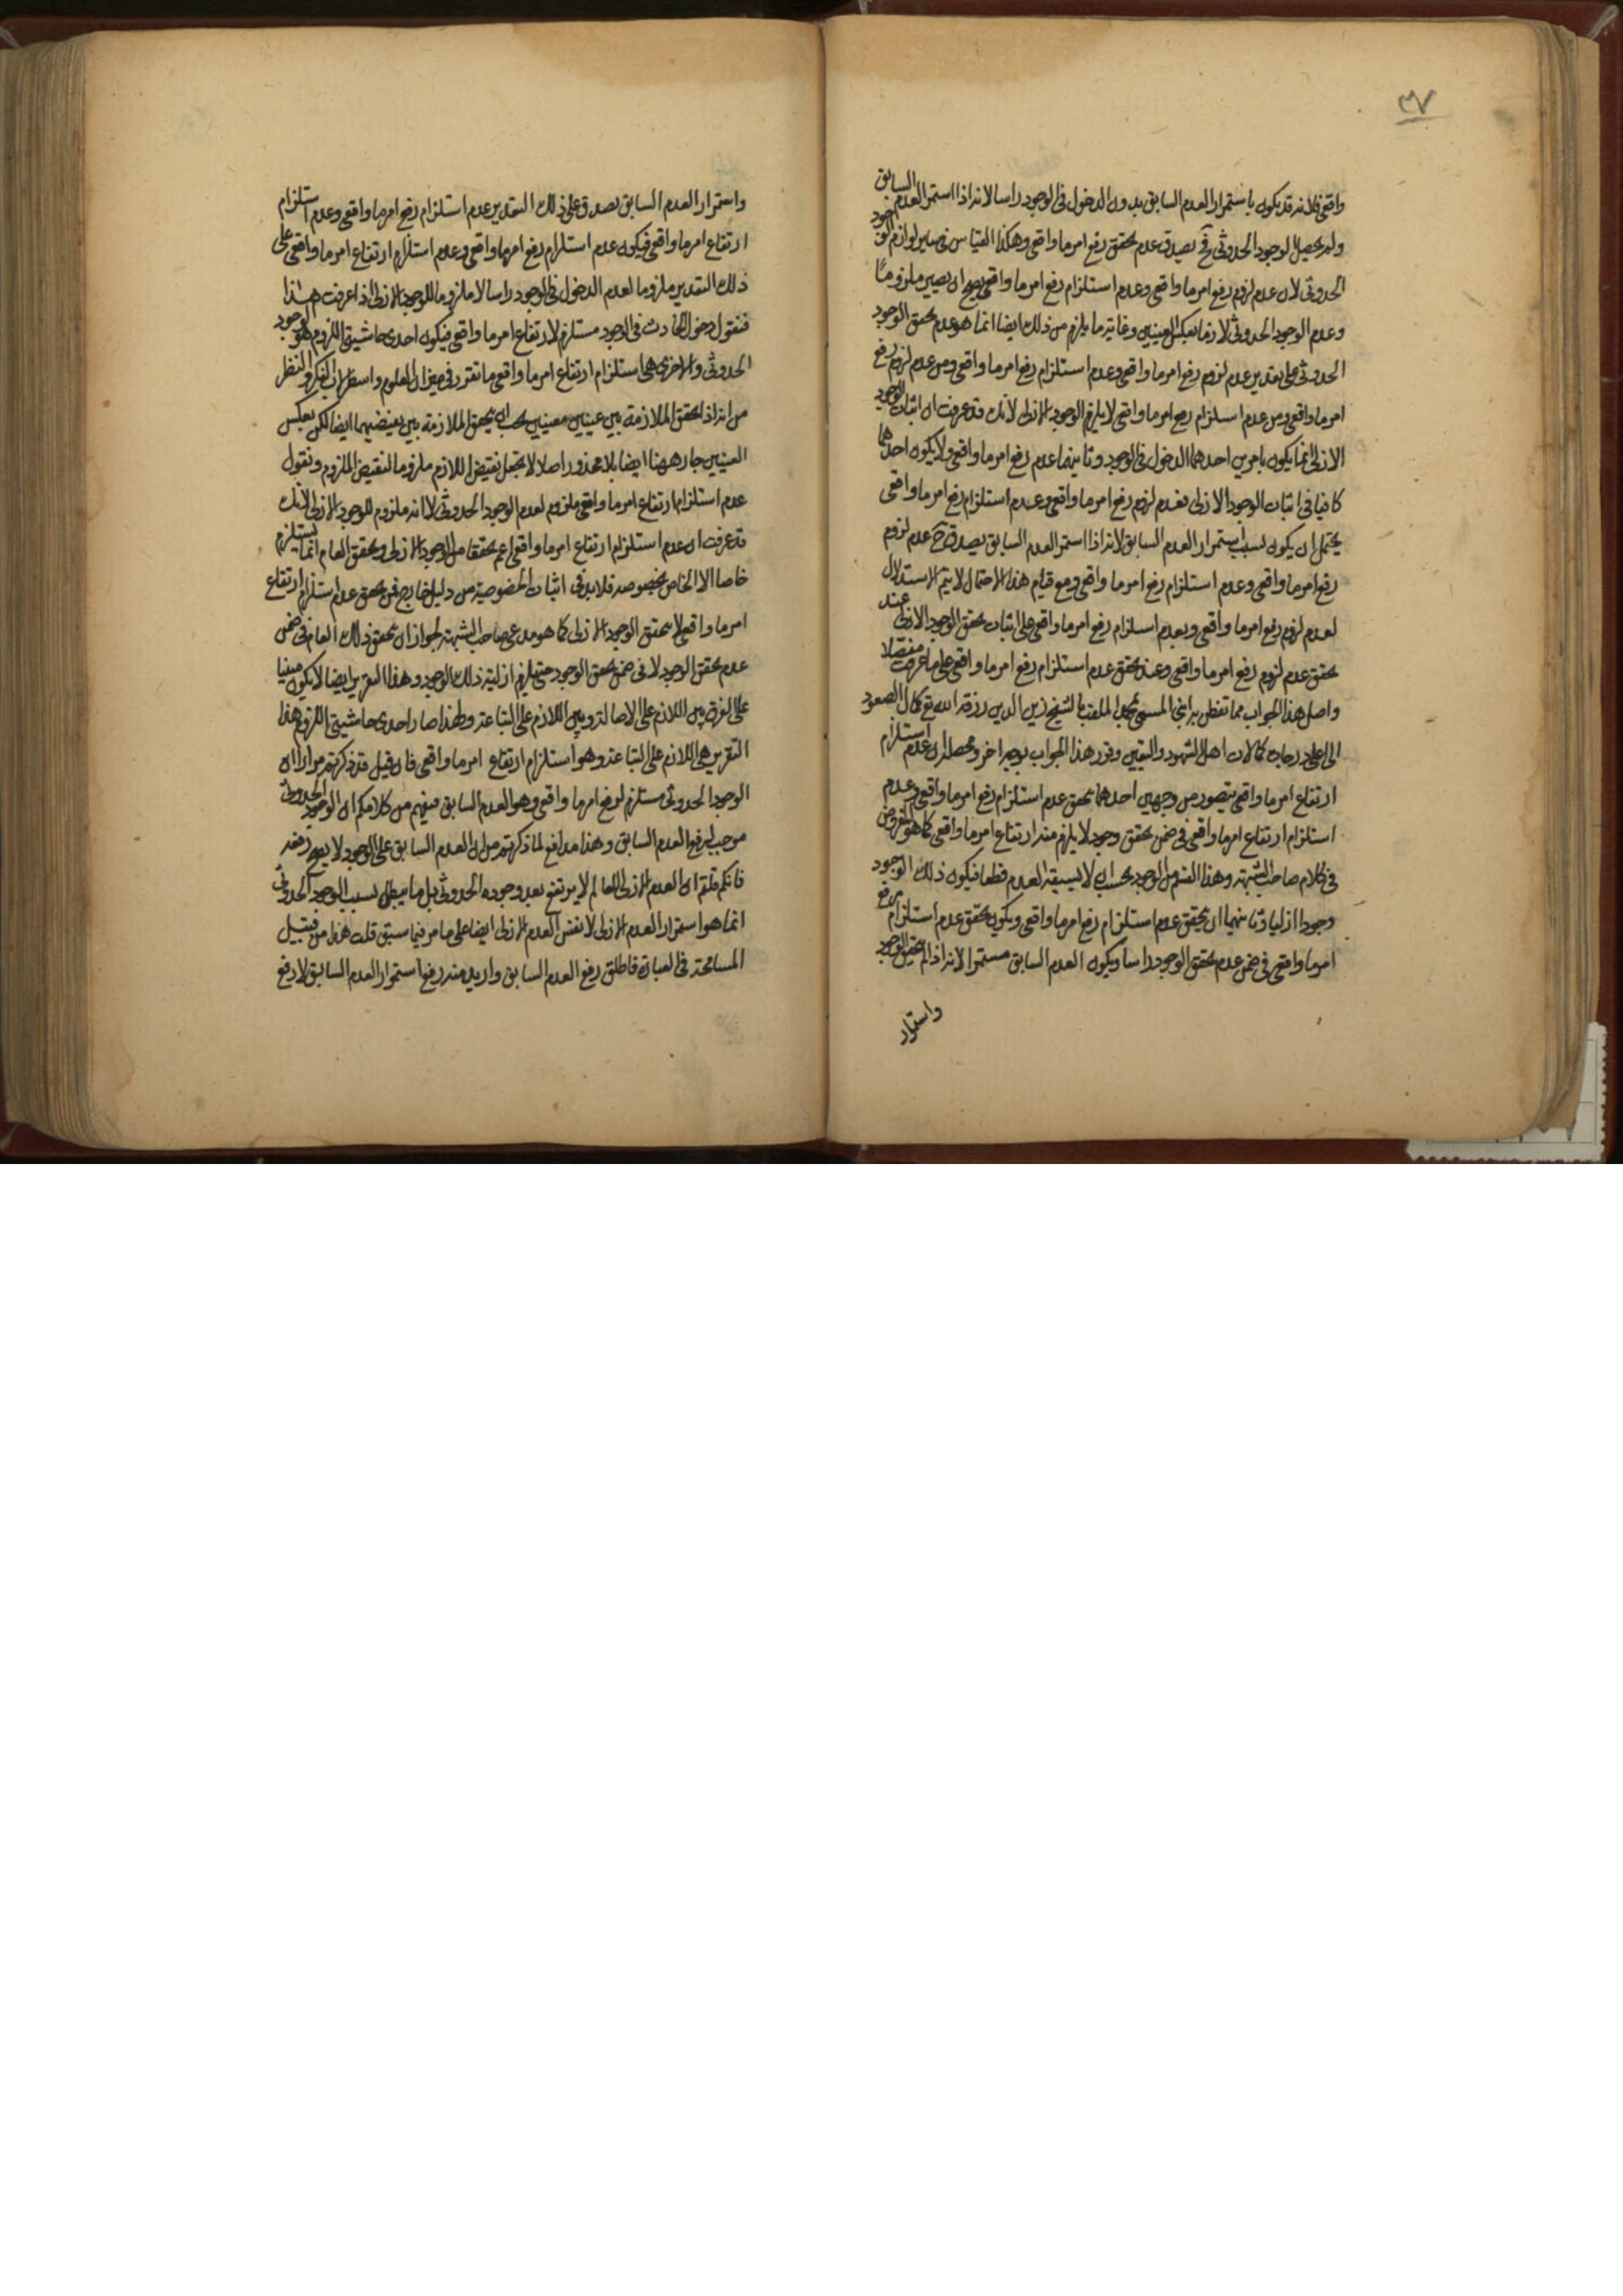 ٣٧
واقعی فلانه قد يكون باستمرار العدم السابق بدون الدخول فی الوجود راسا لانه اذا استمر العدم السابق
ولم يحصل لوجود الحدوثی فح يصدق عدم تحقق رفع امر ما واقعی وهكذا القياس فی ساير لوازم الوجود
الحدوثی لان عدم لزوم رفع امر ما واقعی وعدم استلزام رفع امر ما واقعی يصح ان يصير ملزوما
وعدم الوجود الحدوثی لازما بعكس العينين وغاية ما يلزم من ذلك ايضا انما هو عدم تحقق الوجود
الحدوثی علی تقدير عدم لزوم رفع امر ما واقعی وعدم استلزام رفع امر ما واقعی ومن عدم لزوم رفع
امر ما واقعی ومن عدم استلزام رفع امر ما واقعی لا يلزم الوجود الازلی لانك قد عرفت ان اثبات الوجود
الازلی انما يكون بامرين احدهما الدخول فی الوجود وثانيهما عدم رفع امر ما واقعی ولا يكون احدهما
كافيا فی اثبات الوجود الازلی فعدم لزوم رفع امر ما واقعی وعدم استلزام رفع امر ما واقعی
يحتمل ان يكون بسبب استمرار العدم السابق لانه اذا استمر العدم السابق يصدق ح عدم لزوم
رفع امر ما واقعی وعدم استلزام رفع امر ما واقعی ومع قيام هذا الاحتمال لا يتم الاستدلال
لعدم لزوم رفع امر ما واقعی وبعدم استلزام رفع امر ما واقعی علی اثبات تحقق الوجود الازلی عند
تحقق عدم لزوم رفع امر ما واقعی وعند تحقق عدم استلزام رفع امر ما واقعی علی ما عرفت مفصلا
واصل هذا الجواب مما تفطن به ابنی المسمی بمحمد الملقب بالشيخ زين الدين رزقه الله تع كمال الصعود
الی اعلی درجات كمالات اهل الشهود واليقين وقرر هذا الجواب بوجه اخر ومحصله ان عدم استلزام
ارتفاع امر ما واقعی يتصور من وجهين احدهما تحقق عدم استلزام رفع امر ما واقعی وعدم
استلزام ارتفاع امر ما واقعی فی ضمن تحقق وجود لا يلزم منه ارتفاع امر ما واقعی كما هو المفروض
فی كلام صاحب الشبهة وهذا القسم من الوجود يجب ان لا يسبقه العدم قطعا فيكون ذلك الوجود
وجودا ازليا وثانيهما ان يتحقق عدم استلزام رفع امر ما واقعی ويكون تحقق عدم استلزام رفع
امر ما واقعی فی ضمن عدم تحقق الوجود راسا ويكون العدم السابق مستمرا لانه اذا لم يتحقق الوجود
واستمرار
واستمرار العدم السابق يصدق علی ذلك التقدير عدم استلزام رفع امر ما واقعی وعدم استلزام
ارتفاع امر ما واقعی فيكون عدم استلزام رفع امر ما واقعی وعدم استلزام ارتفاع امر ما واقعی علی
ذلك التقدير ملزوما لعدم الدخول فی الوجود راسا لا ملزوما للوجود الازلی اذا عرفت هذا
فنقول دخول الحادث فی الوجود مستلزم لارتفاع امر ما واقعی فيكون احدی حاشيتی اللزوم هو الوجود
الحدوثی والاخری هی استلزام ارتفاع امر ما واقعی ما تقرر فی ميزان العلوم واسطرلاب الفكر والنظر
من انه اذا تحقق الملازمة بين عينين معينين يجب ان يتحقق الملازمة بين نقيضيهما ايضا لكن بعكس
العينين جار ههنا ايضا بلا محذور اصلا لا يجعل نقيض اللازم ملزوما لنقيض الملزوم ونقول
عدم استلزام ارتفاع امر ما واقعی ملزوم لعدم الوجود الحدوثی لا انه ملزوم للوجود الازلی لانك
قد عرفت ان عدم استلزام ارتفاع امر ما واقعی اعم تحققا من الوجود الازلی وتحقق العام انما يستلزم
خاصا لا الخاص بخصوصه فلا بد فی اثبات الخصوصية من دليل خارج فمن تحقق عدم استلزام ارتفاع
امر ما واقعی لا يتحقق الوجود الازلی كما هو مدعی صاحب الشبهة لجواز ان يتحقق ذلك العام فی ضمن
عدم تحقق الوجود لا فی ضمن تحقق الوجود حتی يلزم ازلية ذلك الوجود وهذا التقرير ايضا لا يكون مبنيا
علی الفرق بين اللازم علی الاصالة وبين اللازم علی التباعة ولهذا صار احدی حاشيتی اللزوم هذا
التقرير هی اللازم علی التباعة وهو استلزام ارتفاع امر ما واقعی فان قيل قد ذكرتم مرارا ان
الوجود الحدوثی مستلزم لرفع امر ما واقعی وهو العدم السابق فيفهم من كلامكم ان الوجود الحدوثی
موجب لرفع العدم السابق وهذا مدافع لما ذكرتم من ان العدم السابق علی الوجود لا يصح رفعه
فانكم قلتم ان العدم الازلی للعالم لا يرتفع بعد وجوده الحدوثی بل ما يبطل بسبب الوجود الحدوثی
انما هو استمرار العدم الازلی لا نفس العدم الازلی ايضا علی ما مر فيما سبق قلت هذا من قبيل
المسامحة فی العبارة فاطلق رفع العدم السابق واريد منه رفع استمرار العدم السابق لا رفع